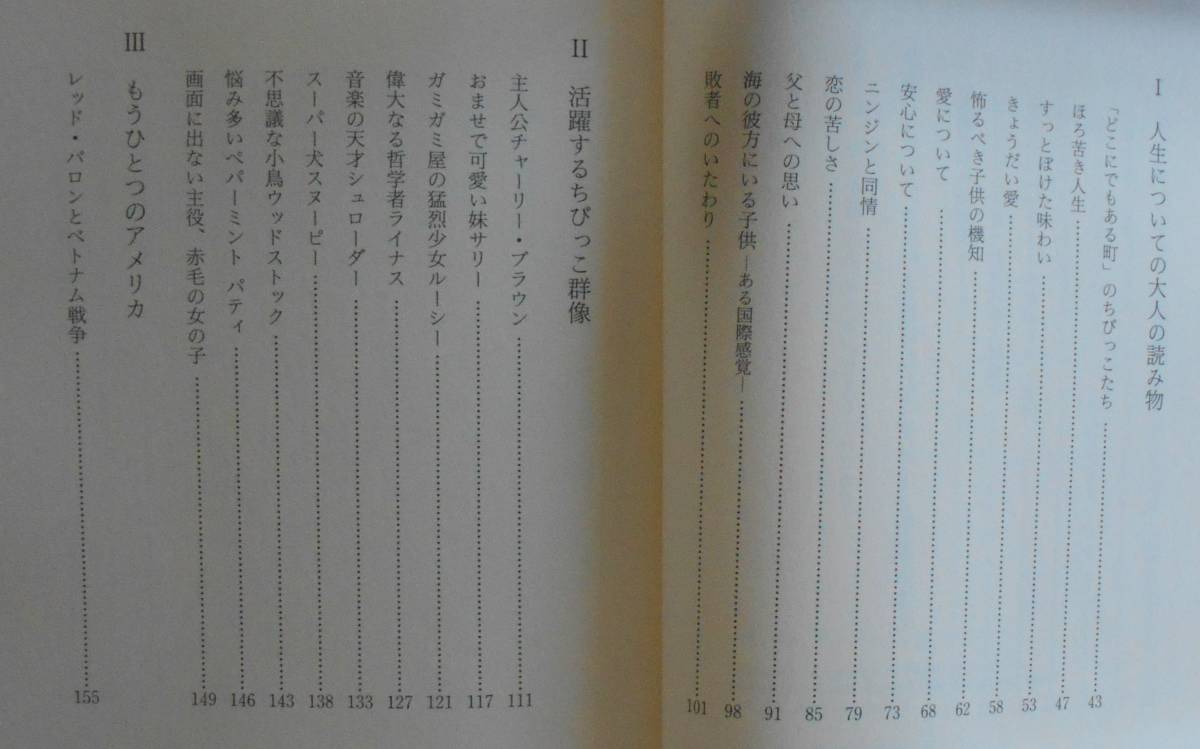 I 人生についての大人の読み物
「どこにでもある町」のちびっこたち……43
ほろ苦き人生……47
すっとぼけた味わい……53
きょうだい愛……58
怖るべき子供の機知……62
愛について……68
安心について……73
ニンジンと同情……79
恋の苦しさ……85
父と母への思い……91
海の彼方にいる子供―ある国際感覚―……98
敗者へのいたわり……101
II 活躍するちびっこ群像
主人公チャーリー・ブラウン……111
おませで可愛い妹サリー……117
ガミガミ屋の猛烈少女ルーシー……121
偉大なる哲学者ライナス……127
音楽の天才シュローダー……133
スーパー犬スヌーピー……138
不思議な小鳥ウッドストック……143
悩み多いペパーミント パティ……146
画面に出ない主役、赤毛の女の子……149
III もうひとつのアメリカ
レッド・バロンとベトナム戦争……155